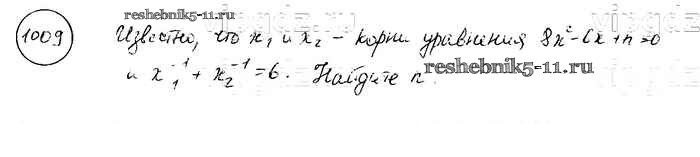 reshebnik5-11.ru
1009 Известно, что x₁ и x₂ - корни уравнения 8x²-6x+n=0
и x₁⁻¹+x₂⁻¹=6. Найдите n.
reshebnik5-11.ru